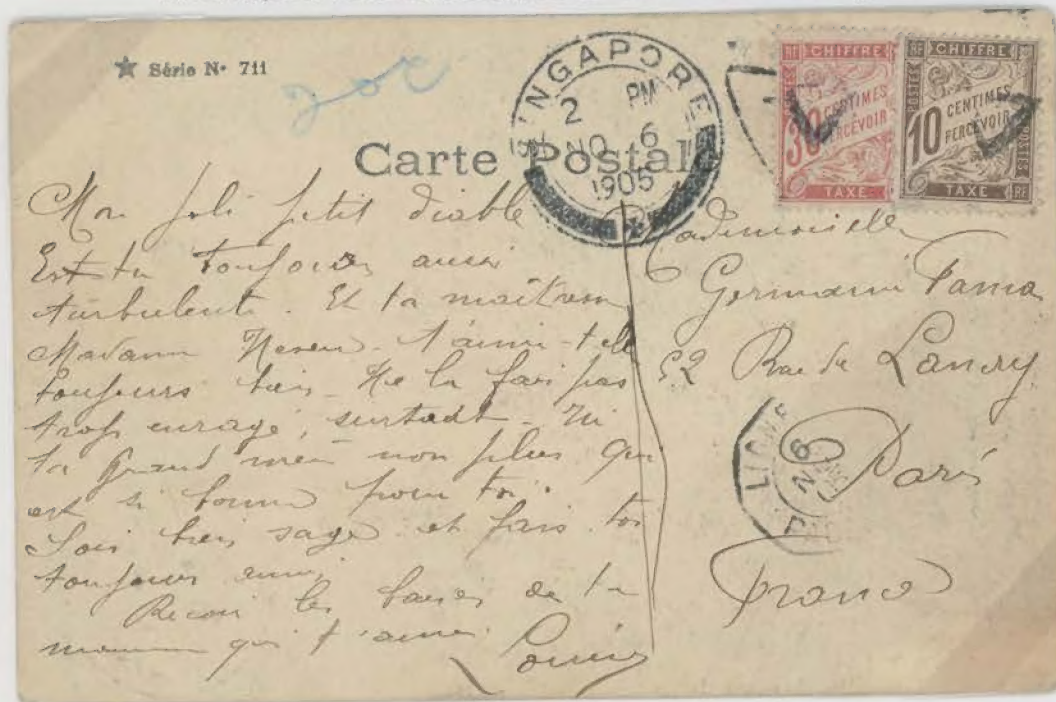 ★ Série N° 711
20c
SINGAPORE
2 PM
NO 6
1905
RF CHIFFRE
POSTES
30 CENTIMES
PERCEVOIR
TAXE
RF CHIFFRE
POSTES
10 CENTIMES
PERCEVOIR
TAXE RF
Carte Postale
Mon joli petit diable
Est tu toujours aussi
turbulente. Et ta maitresse
Madame t'aime-t-elle
toujours bien. Ne la fais pas
trop enragé, surtout. Ni
ta grand mère non plus qui
est si bonne pour toi.
Sois bien sage et fais toi
toujours aimer
Recois les baisers de ta
maman qui t'aime
Mademoiselle
Germaine
52 Rue de Lancry
Paris
France
LIGNE
6
NOV